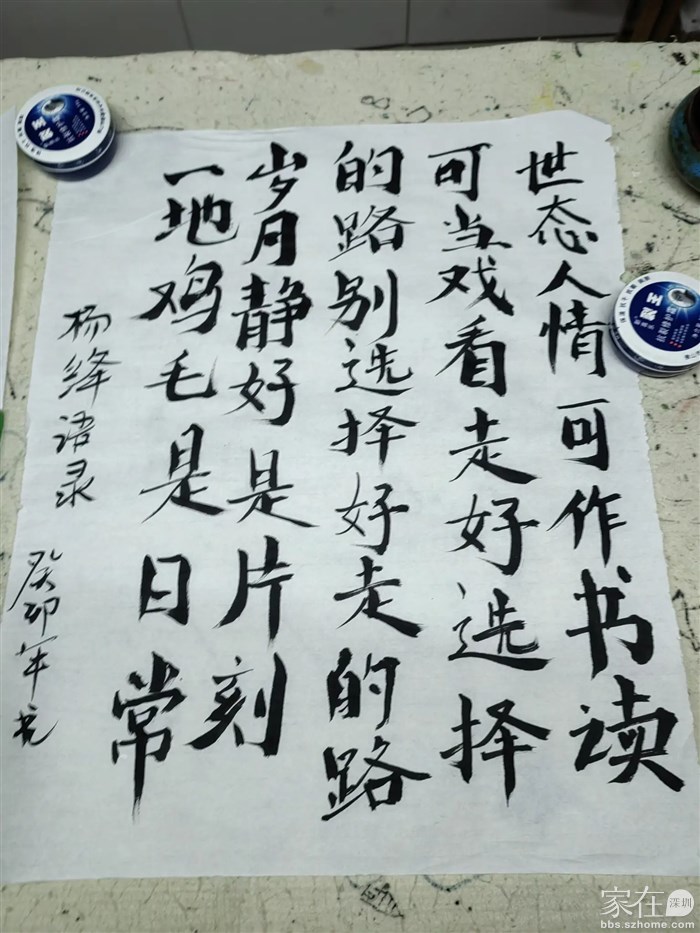 世态人情可作书读
可当戏看走好选择
的路别选择好走的路
岁月静好是片刻
一地鸡毛是日常
杨绛语录
癸卯年
家在深圳
bbs.szhome.com